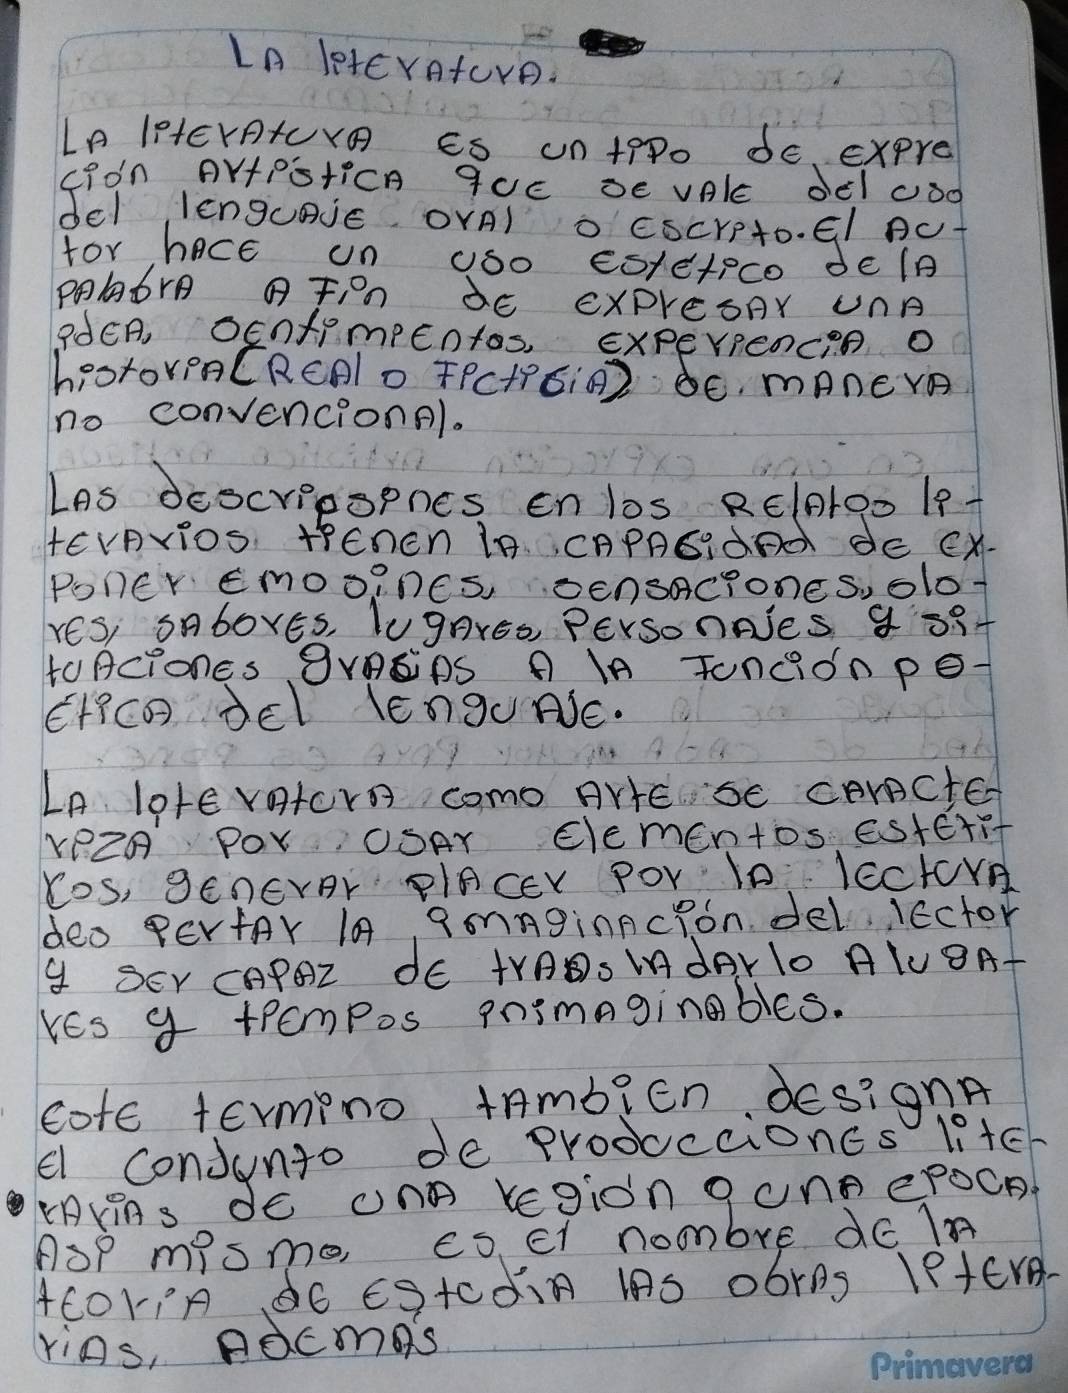 LA literAturA.
LA literAturA es un tipo de, expre
ción Artística que se vAle del uso
del lenguAje orAl o escrito. El Au-
tor hAce un uso estético de lA
pAlAbrA A fin de expresAr unA
ideA, sentimientos, experienciA o
historiA (REAl o FictisiA) de mAnerA
no convencionAl.
LAs descripsines en los RelAtos li-
terArios tienen lA cApAsidAd de ex-
poner emosines, sensAciones, olo-
res, sAbores, lugAres, PersonAjes y si-
tuAciones grAsiAs A lA función po-
éticA del lenguAje.
LA literAturA como Arte se cArActe-
rizA por usAr elementos estéti-
cos, generAr plAcer por lA lecturA
des pertAr lA imAginAción del lector
y ser cApAz de trAsslAdArlo A lugA-
res y tiempos inimAginAbles.
este termino tAmbien designA
el conjunto de producciones lite-
rAriAs de unA región o unA epocA.
Asi mismo, es el nombre de lA
teoríA de estudiA lAs obrAs literA-
riAs, AdemÁs
Primavera